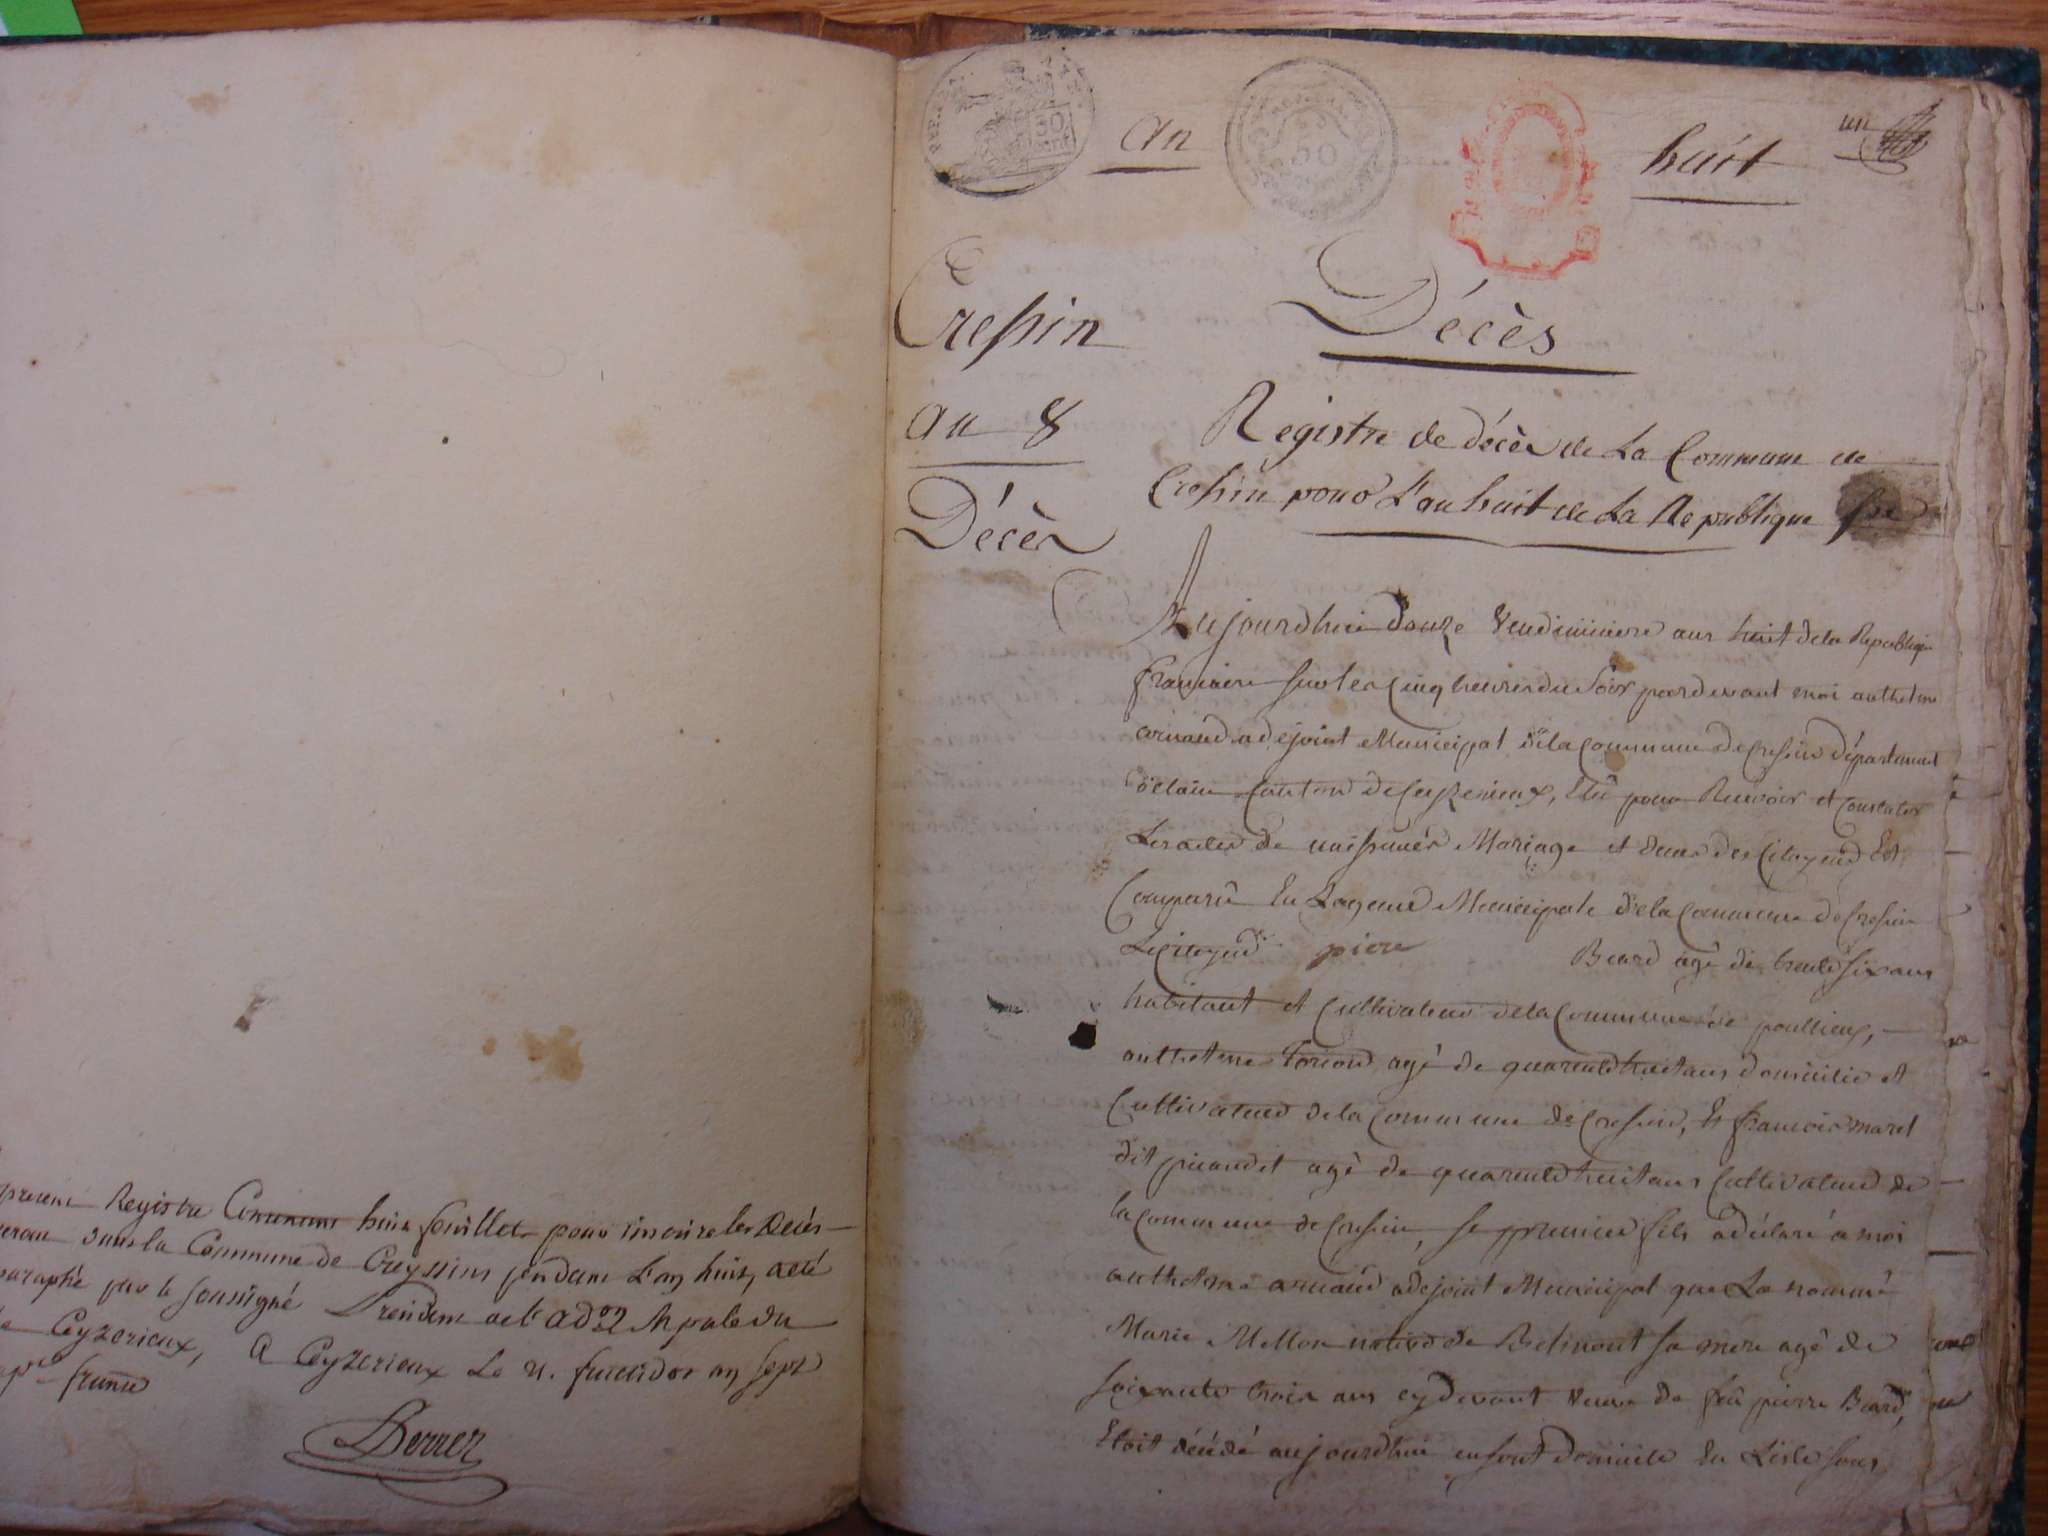 present Registre Contenant huit feuillets pour inscrire les Décès
dans la Commune de Creyssins pendant L'an huit, a été
paraphé par le soussigné President de l'adon Mpale du
Ceyzerieux, A Ceyzerieux Le 21. fructidor an sept
Berrer
REP. FRA.
50
cent
an
50
huit
un
Cressin
an 8
Décès
Décès
Registre de décès de La Commune de
Cressin pour L'an huit de La Republique fse
Aujourdhui douze Vendimiere ans huit de la Republique
francaise sur les Cinq heures du Soir pardevant moi anthelme
arnaud adejoint Municipal de la Commune de Cressin département
delain Canton de Ceyzerieux, Elû pour Recevoir et Constater
Les actes de naissances Mariage et deces des Citoyens Est
Comparû En Lagence Municipale de la Commune de Cressin
Le Citoyend piere Beard agé de trente six ans
habitant et Cultivateur de la Commune de poullieux,
anthelme agé de quarente huit ans domicilié et
Cultivateur de la Commune de Cressin, Et francois maret
dit agé de quarente huit ans Cultivateur de
la Commune de Cressin, Le premier fils a déclaré a moi
anthelme arnaud adejoint Municipal que La nommé
Marie Mellon native de Belmont sa mere agé de
soixante trois ans cy devant veuve de feû pierre Beard,
Etoit décédé aujourdhui en sont domicile En Lisle sous